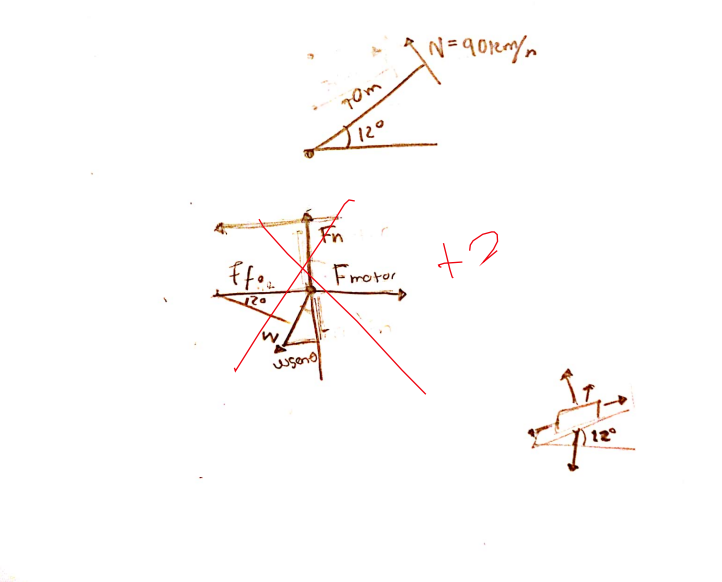 N=90km/h
70m
12°
Fn
Ff
Fmotor
12°
W
wsenθ
+2
12°